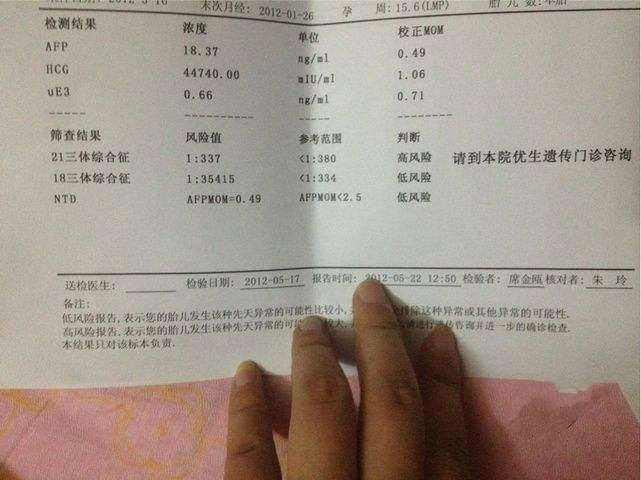 末次月经: 2012-01-26 孕 周: 15.6(LMP)
检测结果 浓度 单位 校正MOM
AFP 18.37 ng/ml 0.49
HCG 44740.00 mIU/ml 1.06
uE3 0.66 ng/ml 0.71
筛查结果 风险值 参考范围 判断
21三体综合征 1:337 <1:380 高风险 请到本院优生遗传门诊咨询
18三体综合征 1:35415 <1:334 低风险
NTD AFPMOM=0.49 AFPMOM<2.5 低风险
送检医生: 检验日期: 2012-05-17 报告时间: 2012-05-22 12:50 检验者: 席金瓯 核对者: 朱 玲
备注:
低风险报告,表示您的胎儿发生该种先天异常的可能性比较小, 排除这种异常或其他异常的可能性.
高风险报告,表示您的胎儿发生该种先天异常的可能 较大, 请进行 咨询并进一步的确诊检查.
本结果只对该标本负责.